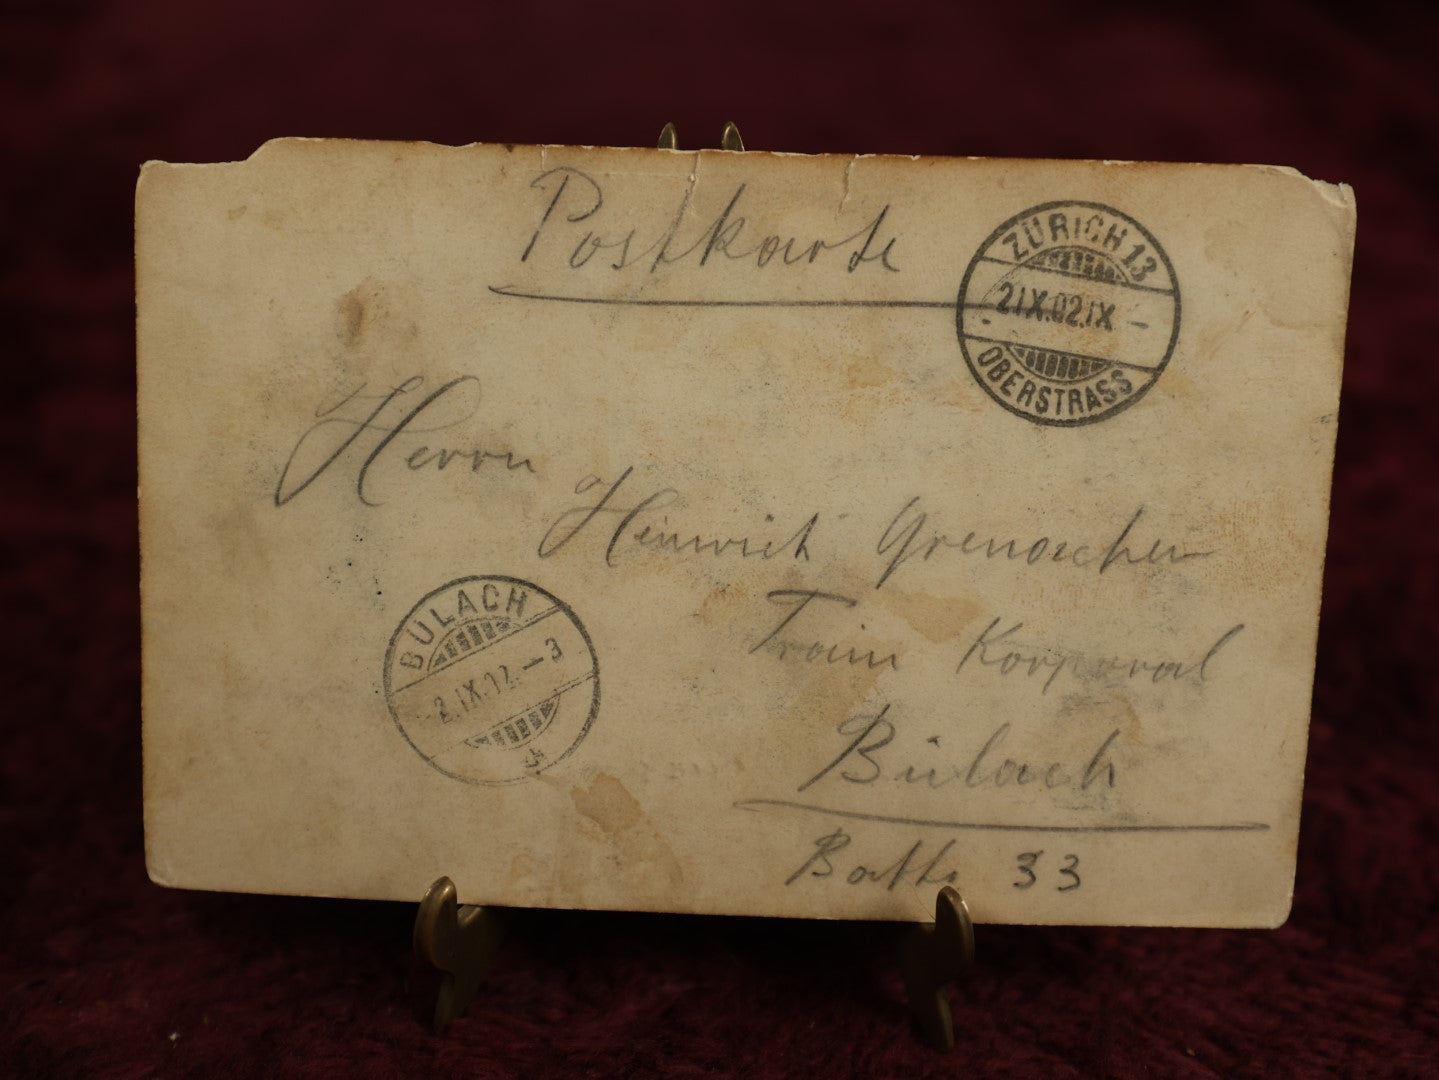 Postkarte
ZÜRICH 13
2.IX.02.IX –
OBERSTRASS
Herrn
Heinrich
Train Korporal
BÜLACH
2.IX.02.–3
Bülach
Battr. 33